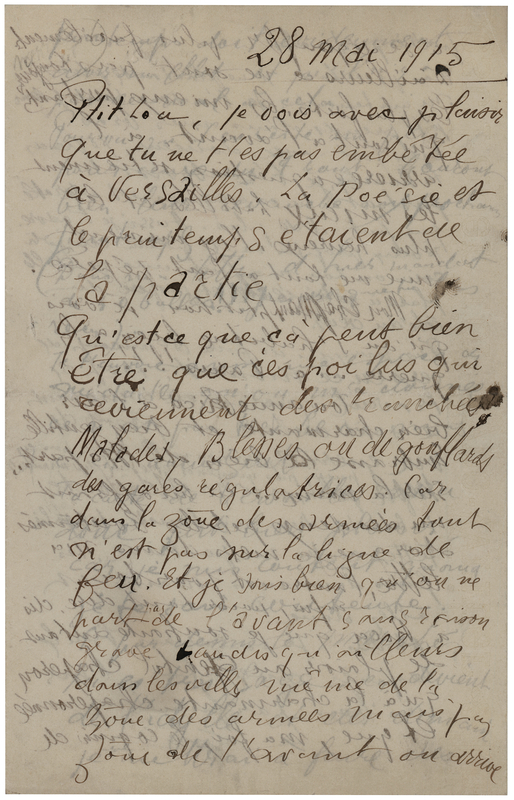 28 mai 1915
je vois avec plaisir
que tu ne t'es pas embêtée
à Versailles. La Poésie et
le printemps étaient de
la partie
Qu'est ce que ça peut bien
être que ces poilus qui
reviennent des tranchées
Malades, Blessés ou de
des gares régulatrices. Car
dans la zône des armées tout
n'est pas sur la ligne de
feu. Et je sais bien qu'on ne
part de l'avant sans raison
grave tandis qu'ailleurs
dans les villes même de la
Zone des armées mais pas
Zone de l'avant on arrive